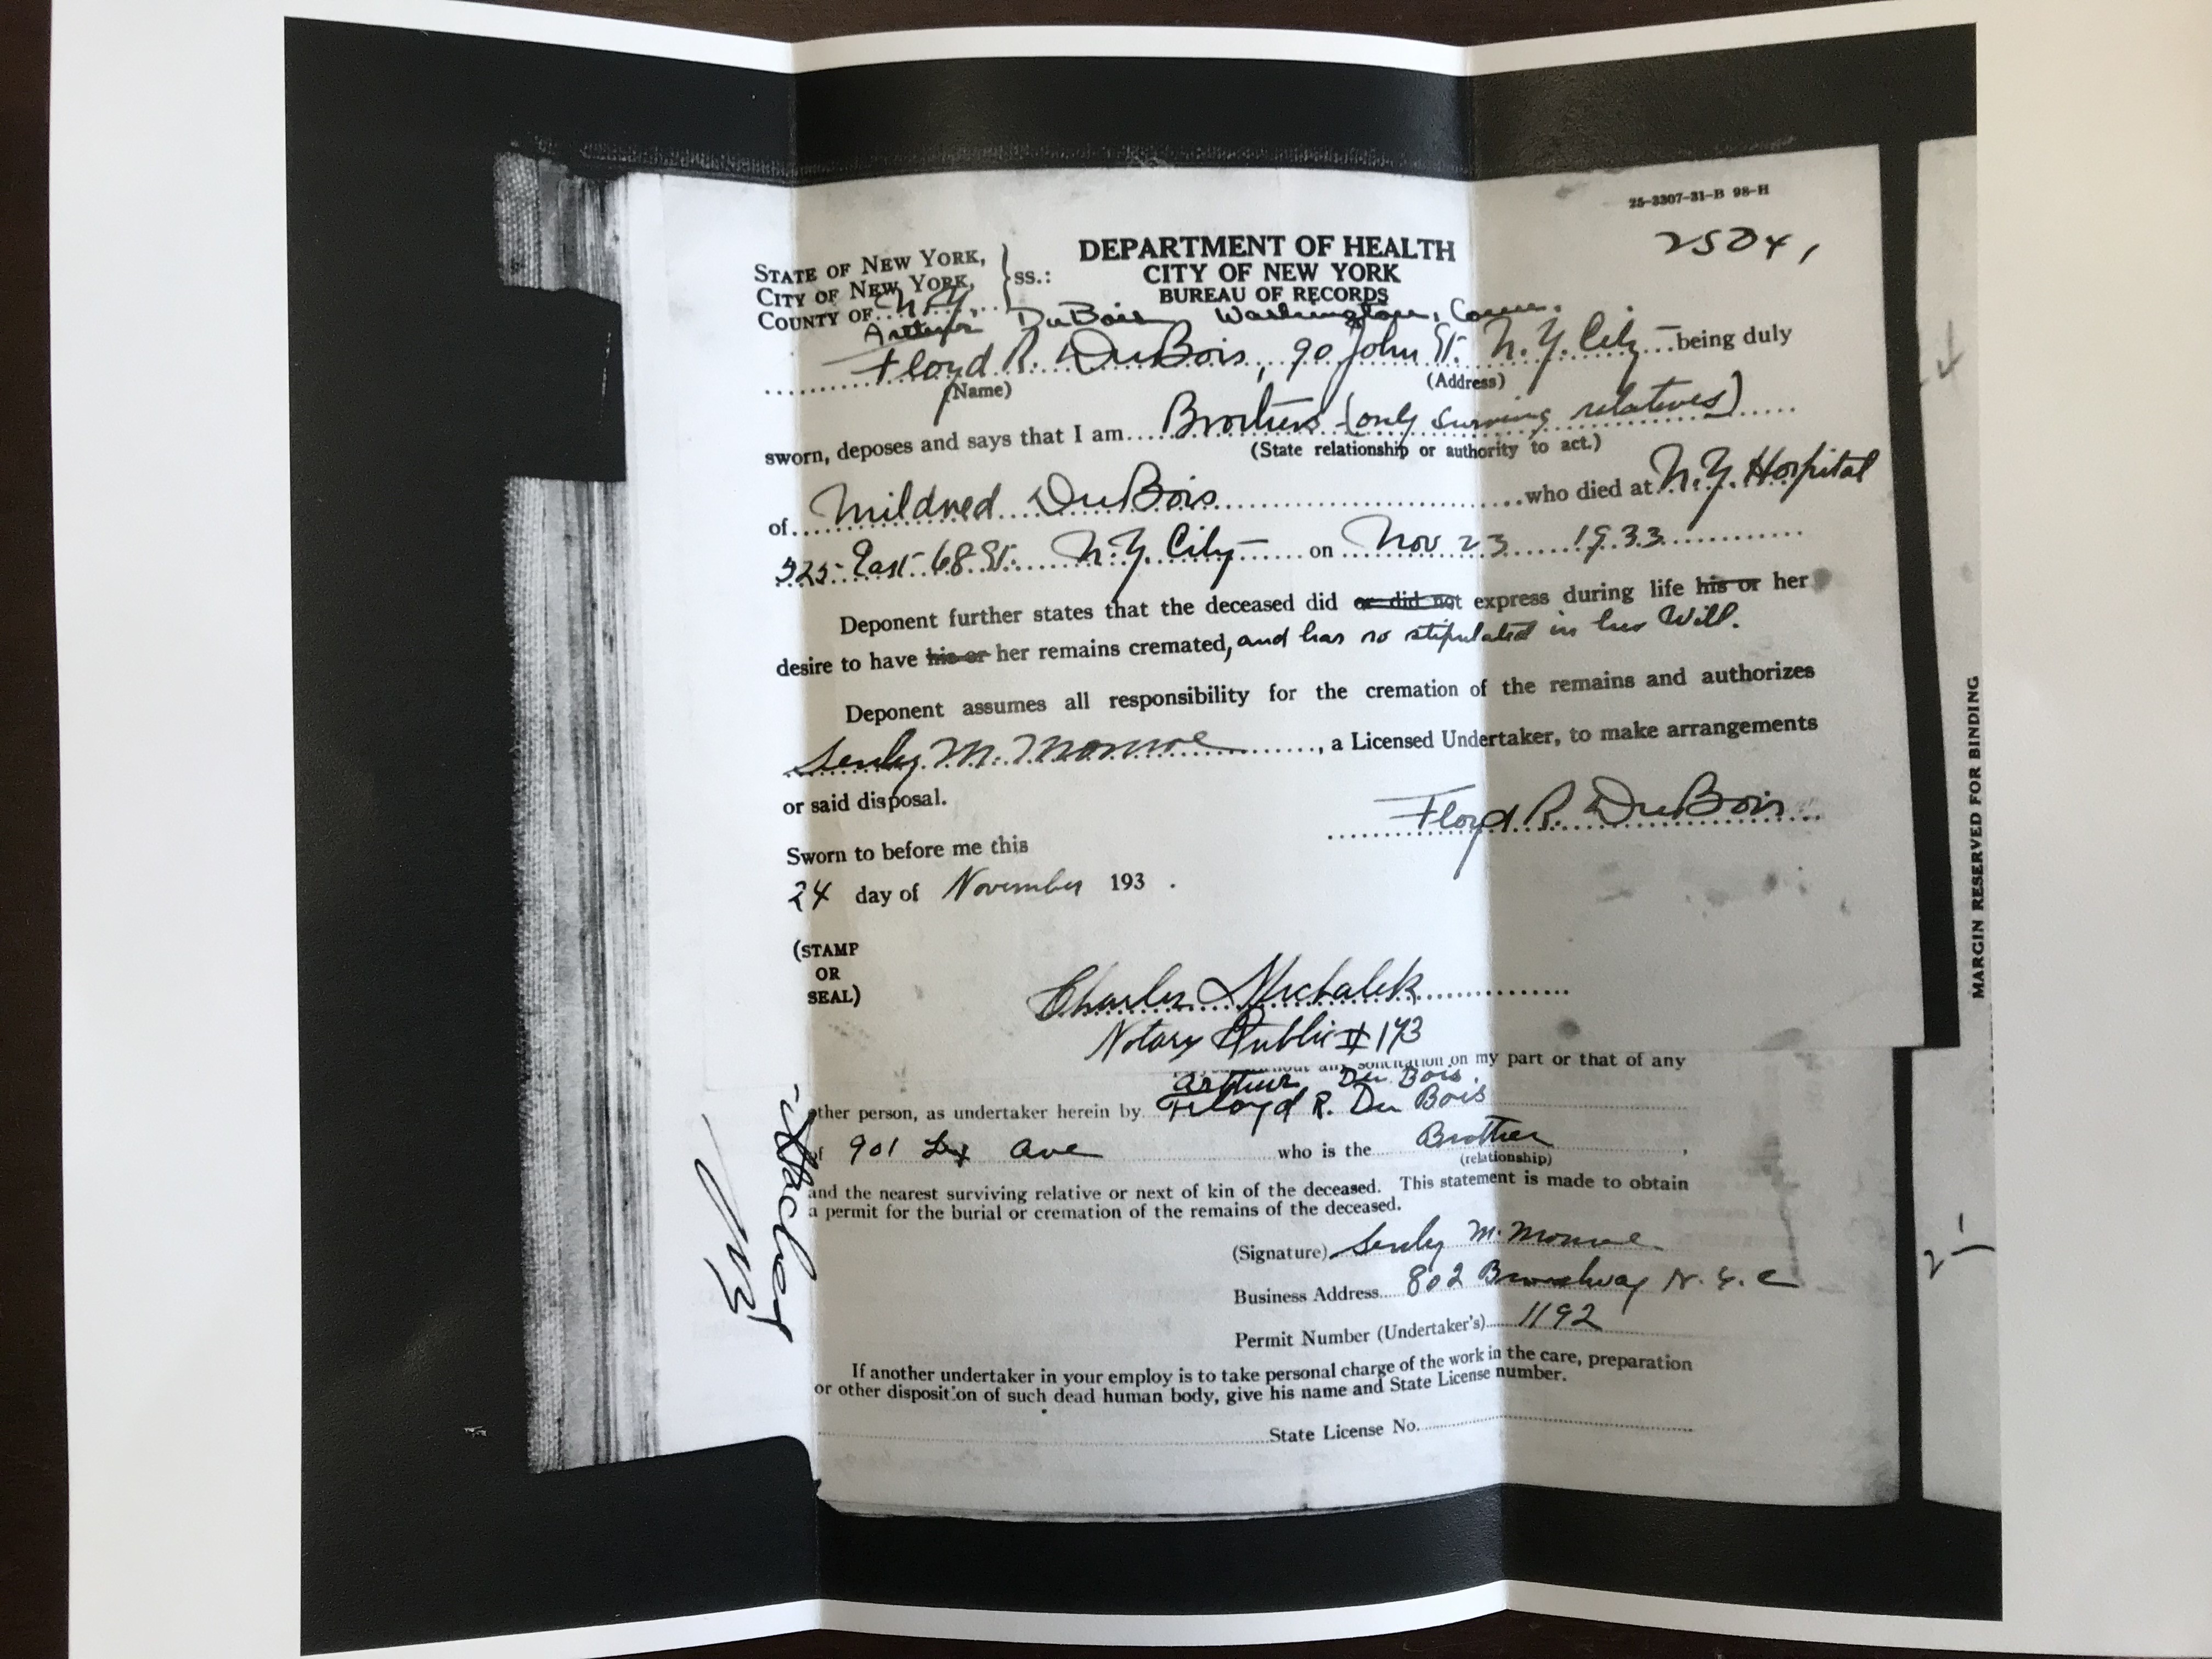 25-3307-31-B 98-H
25041
STATE OF NEW YORK,
CITY OF NEW YORK,
COUNTY OF N.Y.
ss.:
DEPARTMENT OF HEALTH
CITY OF NEW YORK
BUREAU OF RECORDS
Arthur DuBois Washington, Conn.
Floyd R. DuBois, 90 John St. N.Y. City being duly
(Name) (Address)
sworn, deposes and says that I am Brothers (only surviving relatives)
(State relationship or authority to act.)
of Mildred DuBois who died at N.Y. Hospital
525 East 68 St. N.Y. City on Nov 23 1933
Deponent further states that the deceased did or did not express during life his or her
desire to have his or her remains cremated, and has so stipulated in her Will.
Deponent assumes all responsibility for the cremation of the remains and authorizes
M. Monroe, a Licensed Undertaker, to make arrangements
or said disposal.
Floyd R. DuBois
Sworn to before me this
24 day of November 193 .
(STAMP
OR
SEAL)
Charles Michalek
Notary Public # 173
solicitation on my part or that of any
Arthur Du Bois.
other person, as undertaker herein by Floyd R. Du Bois
of 901 Lex Ave who is the Brother,
(relationship)
and the nearest surviving relative or next of kin of the deceased. This statement is made to obtain
a permit for the burial or cremation of the remains of the deceased.
(Signature) M. Monroe
Business Address 802 Broadway N.Y.C
Permit Number (Undertaker's) 1192
If another undertaker in your employ is to take personal charge of the work in the care, preparation
or other disposition of such dead human body, give his name and State License number.
State License No.
MARGIN RESERVED FOR BINDING